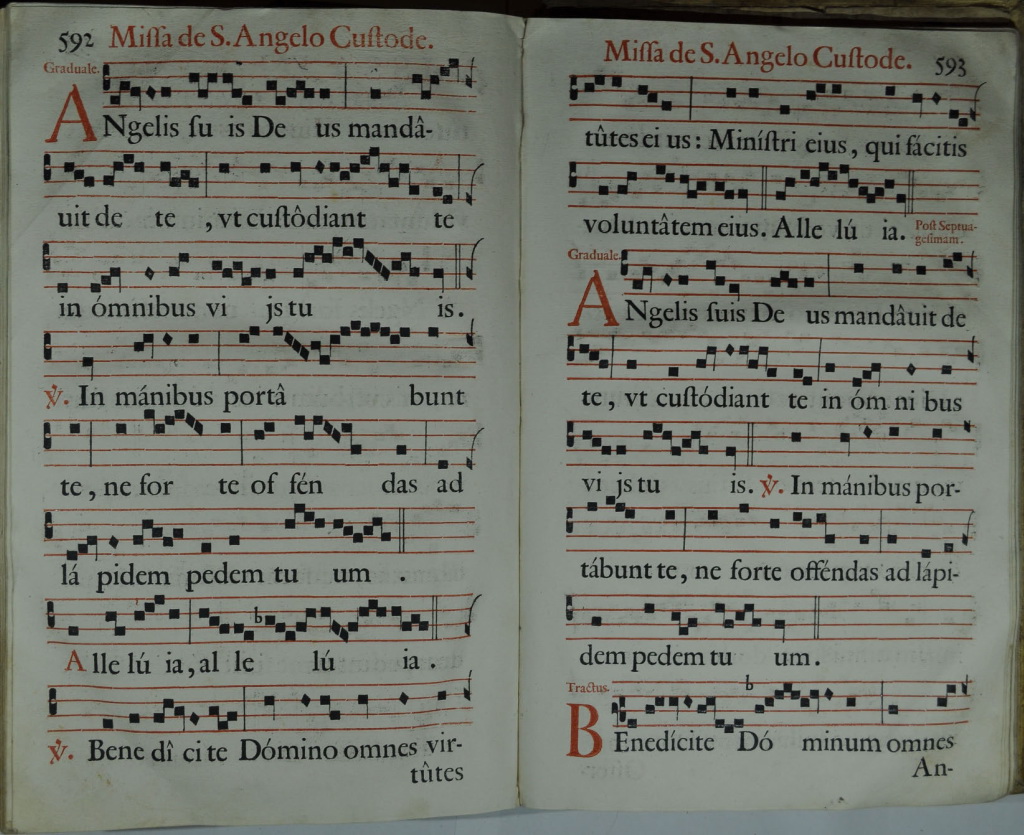 592 Miſſa de S. Angelo Cuſtode.
Graduale.
ANgelis ſu is De us mandâ-
uit de te , vt cuſtôdiant te
in ómnibus vi js tu is.
℣. In mánibus portâ bunt
te, ne for te of fén das ad
lá pidem pedem tu um .
b
Alle lú ia, al le lú ia .
℣. Bene dî ci te Dómino omnes vir-
tûtes
Miſſa de S. Angelo Cuſtode. 593
tûtes ei us: Miníſtri eius, qui fácitis
voluntâtem eius. Alle lú ia. Poſt Septua-
geſimam.
Graduale.
ANgelis ſuis De us mandâuit de
te, vt cuſtódiant te in óm ni bus
vi js tu is. ℣. In mánibus por-
tábunt te, ne forte offéndas ad lápi-
dem pedem tu um.
Tractus.
b
BEnedícite Dó minum omnes
An-